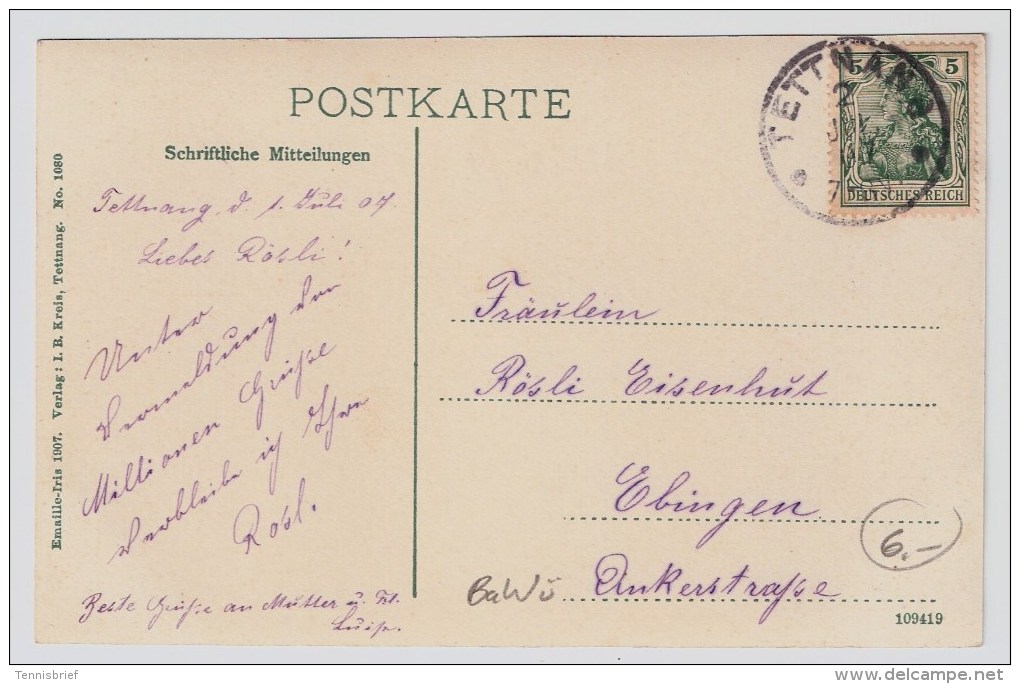 POSTKARTE
Schriftliche Mitteilungen
Tettnang, d. 1. Juli 07.
Liebes Rösli!
Unter
Vermeldung von
Millionen Grüße
verbleibe ich Ihre
Rösl.
Beste Grüße an Mutter u. Frl.
Luise.
Emaille-Iris 1907. Verlag: I. B. Kreis, Tettnang. No. 1080
TETTNANG
2
5 5
DEUTSCHES REICH
Fräulein
Rösli Eisenhut
Ebingen
Ankerstraße
6.-
BaWü
109419
Tennisbrief
www.delcampe.net